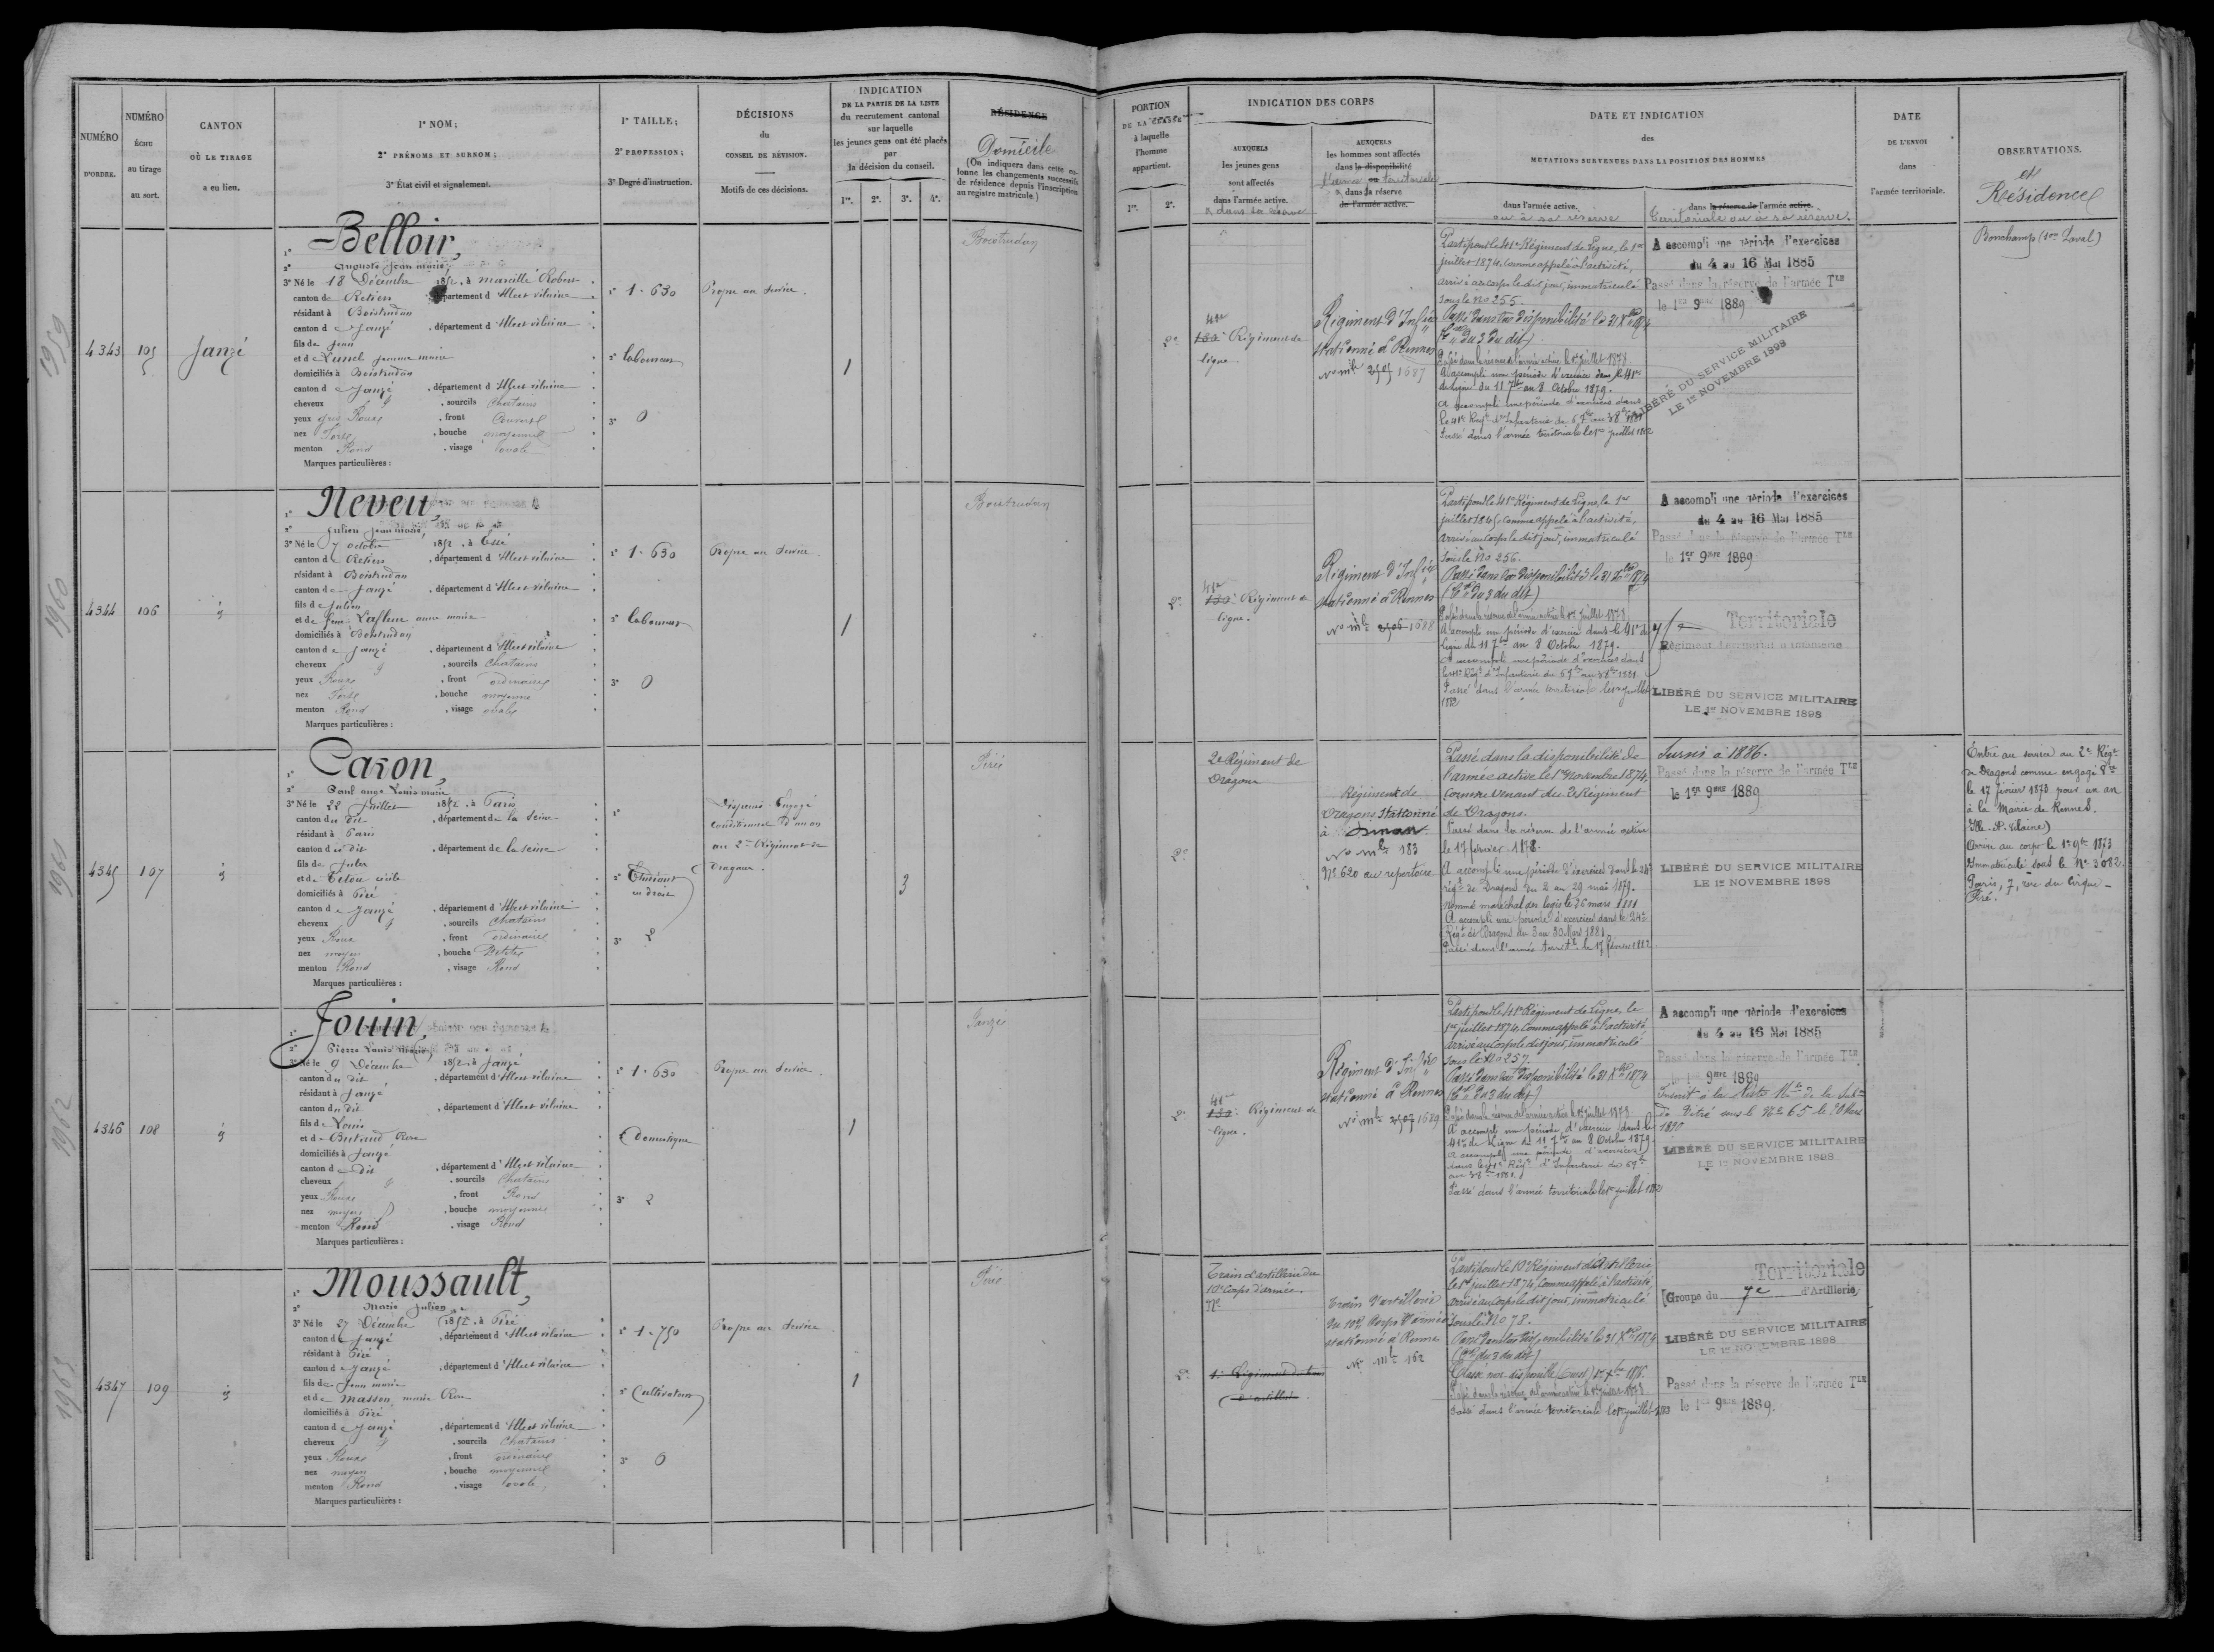 NUMÉRO
D'ORDRE.
NUMÉRO
ÉCHU
au tirage
au sort.
CANTON
OÙ LE TIRAGE
a eu lieu.
1° NOM;
2° PRÉNOMS ET SURNOM;
3° État civil et signalement.
1° TAILLE;
2° PROFESSION;
3° Degré d'instruction.
DÉCISIONS
du
CONSEIL DE RÉVISION.
Motifs de ces décisions.
INDICATION
DE LA PARTIE DE LA LISTE
du recrutement cantonal
sur laquelle
les jeunes gens ont été placés
par
la décision du conseil.
1re. 2e. 3e. 4e.
RÉSIDENCE
Domicile
(On indiquera dans cette co-
lonne les changements successifs
de résidence depuis l'inscription
au registre matricule.)
PORTION
DE LA CLASSE
à laquelle
l'homme
appartient.
1re. 2e.
INDICATION DES CORPS
AUXQUELS
les jeunes gens
sont affectés
dans l'armée active.
& dans la réserve
AUXQUELS
les hommes sont affectés
dans la disponibilité
l'armée territoriale
& dans la réserve
de l'armée active.
DATE ET INDICATION
des
MUTATIONS SURVENUES DANS LA POSITION DES HOMMES
dans l'armée active.
ou à sa réserve
dans la réserve de l'armée active.
territoriale ou à sa réserve.
DATE
DE L'ENVOI
dans
l'armée territoriale.
OBSERVATIONS.
et
Résidence
1959
4343
105
Janzé
1° Belloir,
2° Auguste Jean marie,
3° Né le 18 Décembre 1852, à Marcillé Robert
canton de Retiers département d'Ille et vilaine
résidant à Boistrudan
canton de Janzé, département d'Ille et vilaine
fils de Jean
et de Lunel Jeanne marie
domiciliés à Boistrudan
canton de Janzé, département d'Ille et vilaine
cheveux, sourcils Chatains
yeux gris Roux, front Couvert
nez Fort, bouche moyenne
menton Rond, visage ovale
Marques particulières :
1° 1.630
2° laboureur
3° 0
Propre au Service.
1
Boistrudan
2e
41e
130e Régiment de
ligne.
Régiment d'Infie
stationné à Rennes
No mle 2505 1687
Parti pour le 41e Régiment de Ligne, le 1er
juillet 1874, comme appelé à l'activité,
arrivé au corps le dit jour, immatriculé
sous le No 255.
Passé dans la disponibilité le 31 Xbre 1874
du 3 du dit)
Passé dans la réserve de l'armée active le 1er juillet 1878.
A accompli une période d'exercice dans le 41e
de ligne du 11 7bre au 8 Octobre 1879.
a accompli une période d'exercices dans
le 41e Régt d'Infanterie du 6 7bre au 3 8bre 1881
Passé dans l'armée territoriale le 1er juillet 1882
A accompli une période d'exercices
du 4 au 16 Mai 1885
Passé dans la réserve de l'armée TLE
le 1er 9bre 1889
LIBÉRÉ DU SERVICE MILITAIRE
LE 1er NOVEMBRE 1898
Bonchamp (son Laval)
1960
4344
106
id
1° Neveu,
2° Julien Jean marie,
3° Né le 7 octobre 1852, à Essé
canton de Retiers, département d'Ille et vilaine
résidant à Boistrudan
canton de Janzé, département d'Ille et vilaine
fils de Julien
et de feue Lafleur anne marie
domiciliés à Boistrudan
canton de Janzé, département d'Ille et vilaine
cheveux, sourcils Chatains
yeux Roux, front ordinaire
nez Fort, bouche moyenne
menton Rond, visage ovale
Marques particulières :
1° 1.630
2° laboureur
3° 0
Propre au Service.
1
Boistrudan
2e
41e
130e Régiment de
ligne.
Régiment d'Infie
stationné à Rennes
No mle 2506 1688
Parti pour le 41e Régiment de Ligne, le 1er
juillet 1874, comme appelé à l'activité,
arrivé au corps le dit jour, immatriculé
sous le No 256.
Passé dans la disponibilité le 31 Xbre 1874
du 3 du dit)
Passé dans la réserve de l'armée active le 1er juillet 1878.
A accompli une période d'exercice dans le 41e de
Ligne du 11 7bre au 8 Octobre 1879.
A accompli une période d'exercices dans
le 41e Régt d'Infanterie du 6 7bre au 3 8bre 1881.
Passé dans l'armée territoriale le 1er juillet
1882
A accompli une période d'exercices
du 4 au 16 Mai 1885
Passé dans la réserve de l'armée TLE
le 1er 9bre 1889
Territoriale
Régiment Territorial d'Infanterie
LIBÉRÉ DU SERVICE MILITAIRE
LE 1er NOVEMBRE 1898
1961
4345
107
id
1° Caron,
2° Paul ange Louis marie
3° Né le 22 Juillet 1852, à Paris
canton du dit, département de la Seine
résidant à Paris
canton du dit, département de la seine
fils de Jules
et de Tetou cécile
domiciliés à Piré
canton de Janzé, département d'Ille et vilaine
cheveux, sourcils Chatains
yeux Roux, front ordinaire
nez moyen, bouche Petite
menton Rond, visage Rond
Marques particulières :
1°
2° Etudiant
en droit
3° 2
Dispensé. Engagé
conditionnel d'un an
au 2me Régiment de
Dragons.
3
Piré
2e
2e Régiment de
Dragons
Régiment de
Dragons stationné
à Dinan.
No mle 183
No 620 au répertoire
Passé dans la disponibilité de
l'armée active le 1er Novembre 1874.
comme venant du 2e Régiment
de Dragons.
Passé dans la réserve de l'armée active
le 17 février 1878.
A accompli une période d'exercices dans le 24e
régt de Dragons du 2 au 29 mai 1879.
Nommé maréchal des logis le 26 mars 1881
A accompli une période d'exercices dans le 24e
Régt de Dragons du 3 au 30 Mars 1881.
Passé dans l'armée territle le 17 février 1882.
Sursis à 1886.
Passé dans la réserve de l'armée TLE
le 1er 9bre 1889
LIBÉRÉ DU SERVICE MILITAIRE
LE 1er NOVEMBRE 1898
Entré au service au 2e Régt
de Dragons comme engagé
le 17 février 1873 pour un an
à la Mairie de Rennes.
(Ille-et-Vilaine)
Arrivé au corps le 1er 9bre 1873
Immatriculé sous le No 3082.
Paris, 7, rue du Cirque -
Piré.
1962
4346
108
id
1° Jouin,
2° Pierre Louis Marie,
3° Né le 9 Décembre 1852, à Janzé
canton du dit, département d'Ille et vilaine
résidant à Janzé
canton du dit, département d'Ille et vilaine
fils de Louis
et de Butaud Rose
domiciliés à Janzé
canton de Dit, département d'Ille et vilaine
cheveux, sourcils Chatains
yeux Roux, front Rond
nez moyen, bouche moyenne
menton Rond, visage Rond
Marques particulières :
1° 1.630
2° Domestique
3° 2
Propre au Service.
1
Janzé
2e
41e
130e Régiment de
ligne.
Régiment d'Infie
stationné à Rennes
No mle 2507 1689
Parti pour le 41e Régiment de Ligne, le
1er juillet 1874, comme appelé à l'activité,
arrivé au corps le dit jour, immatriculé
sous le No 257.
Passé dans la disponibilité le 31 Xbre 1874
du 3 du dit)
Passé dans la réserve de l'armée active le 1er juillet 1878.
A accompli une période d'exercice dans le
41e de Ligne du 11 7bre au 8 Octobre 1879.
a accompli une période d'exercices
dans le 41e Régt d'Infanterie du 6 7bre
au 3 8bre 1881.
Passé dans l'armée territoriale le 1er juillet 1882
A accompli une période d'exercices
du 4 au 16 Mai 1885
Passé dans la réserve de l'armée TLE
9bre 1889
Inscrit à la liste Mle de la Subon
de Vitré sous le No 65 le 20 Mars
1890
LIBÉRÉ DU SERVICE MILITAIRE
LE 1er NOVEMBRE 1898
1963
4347
109
id
1° Moussault,
2° Marie Julien
3° Né le 27 Décembre 1852, à Piré
canton de Janzé, département d'Ille et vilaine
résidant à Piré
canton de Janzé, département d'Ille et vilaine
fils de Jean marie
et de Masson marie Rose
domiciliés à Piré
canton de Janzé, département d'Ille et vilaine
cheveux, sourcils Chatains
yeux Roux, front ordinaire
nez moyen, bouche moyenne
menton Rond, visage ovale
Marques particulières :
1° 1.750
2° Cultivateur
3° 0
Propre au Service.
1
Piré
2e
Train d'artillerie du
10e Corps d'armée.
1er Régiment du train
d'artillerie
Train d'artillerie
du 10e Corps d'armée
stationné à Rennes
No mle 162
Parti pour le 10e Régiment d'Artillerie,
le 1er juillet 1874, comme appelé à l'activité,
arrivé au corps le dit jour, immatriculé
sous le No 78.
Passé dans la disponibilité le 31 Xbre 1874
du 3 du dit)
Classé non disponible
Passé dans la réserve de l'armée active le 1er juillet 1878.
Passé dans l'armée territoriale le 1er juillet 1883
Territoriale
Groupe du 7e d'Artillerie
LIBÉRÉ DU SERVICE MILITAIRE
LE 1er NOVEMBRE 1898
Passé dans la réserve de l'armée TLE
le 1er 9bre 1889.